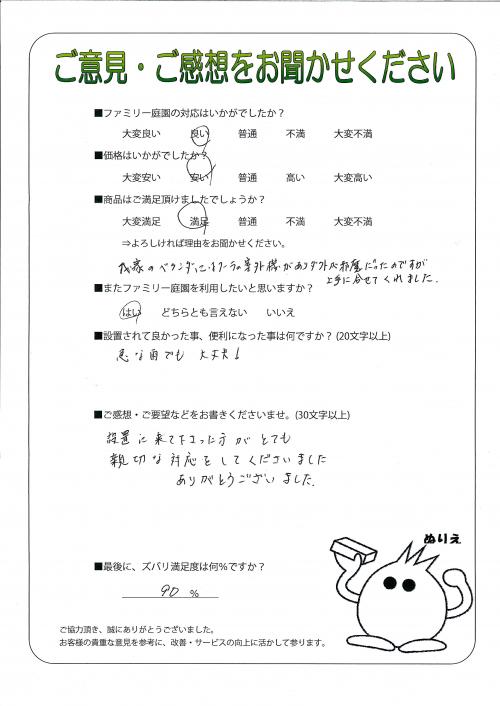 ご意見・ご感想をお聞かせください
■ファミリー庭園の対応はいかがでしたか？
大変良い 良い 普通 不満 大変不満
■価格はいかがでしたか？
大変安い 安い 普通 高い 大変高い
■商品はご満足頂けましたでしょうか？
大変満足 満足 普通 不満 大変不満
⇒よろしければ理由をお聞かせください。
我家のベランダにはクーラーの室外機がありダクトが邪魔だったのですが
上手に合せてくれました.
■またファミリー庭園を利用したいと思いますか？
はい どちらとも言えない いいえ
■設置されて良かった事、便利になった事は何ですか？(20文字以上)
急な雨でも 大丈夫！
■ご感想・ご要望などをお書きくださいませ。(30文字以上)
設置に来て下さった方が とても
親切な対応をしてくださいました
ありがとうございました.
ぬりえ
■最後に、ズバリ満足度は何％ですか？
90 ％
ご協力頂き、誠にありがとうございました。
お客様の貴重な意見を参考に、改善・サービスの向上に活かして参ります。